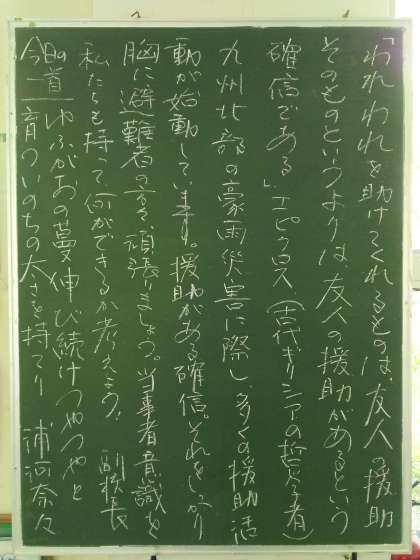 「われわれを助けてくれるものは、友人の援助
そのものというよりは、友人の援助があるという
確信である」エピクロス(古代ギリシアの哲学者)
九州北部の豪雨災害に際し、多くの援助活
動が始動しています。援助がある確信。それをしっかり
胸に避難者の方々、頑張りましょう。当事者意識を
私たちも持って、何ができるか考えよう。副校長
今日の一首 ゆふがおの蔓伸び続けつやつやと
一育ついのちの太さを持てり 浦河奈々